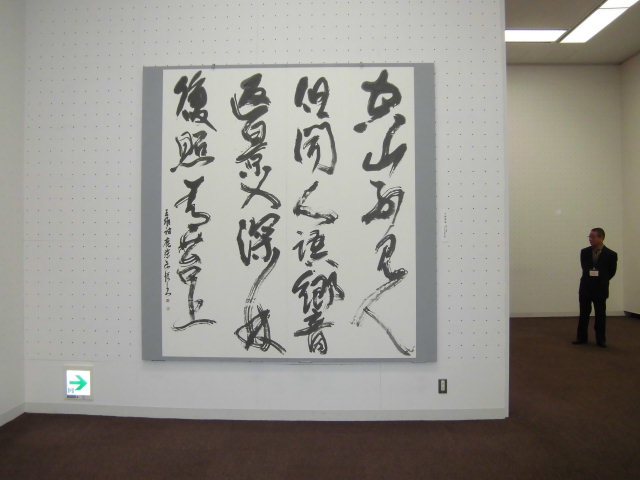 空山不見人
但聞人語響
返景入深林
復照青苔上
王維詩